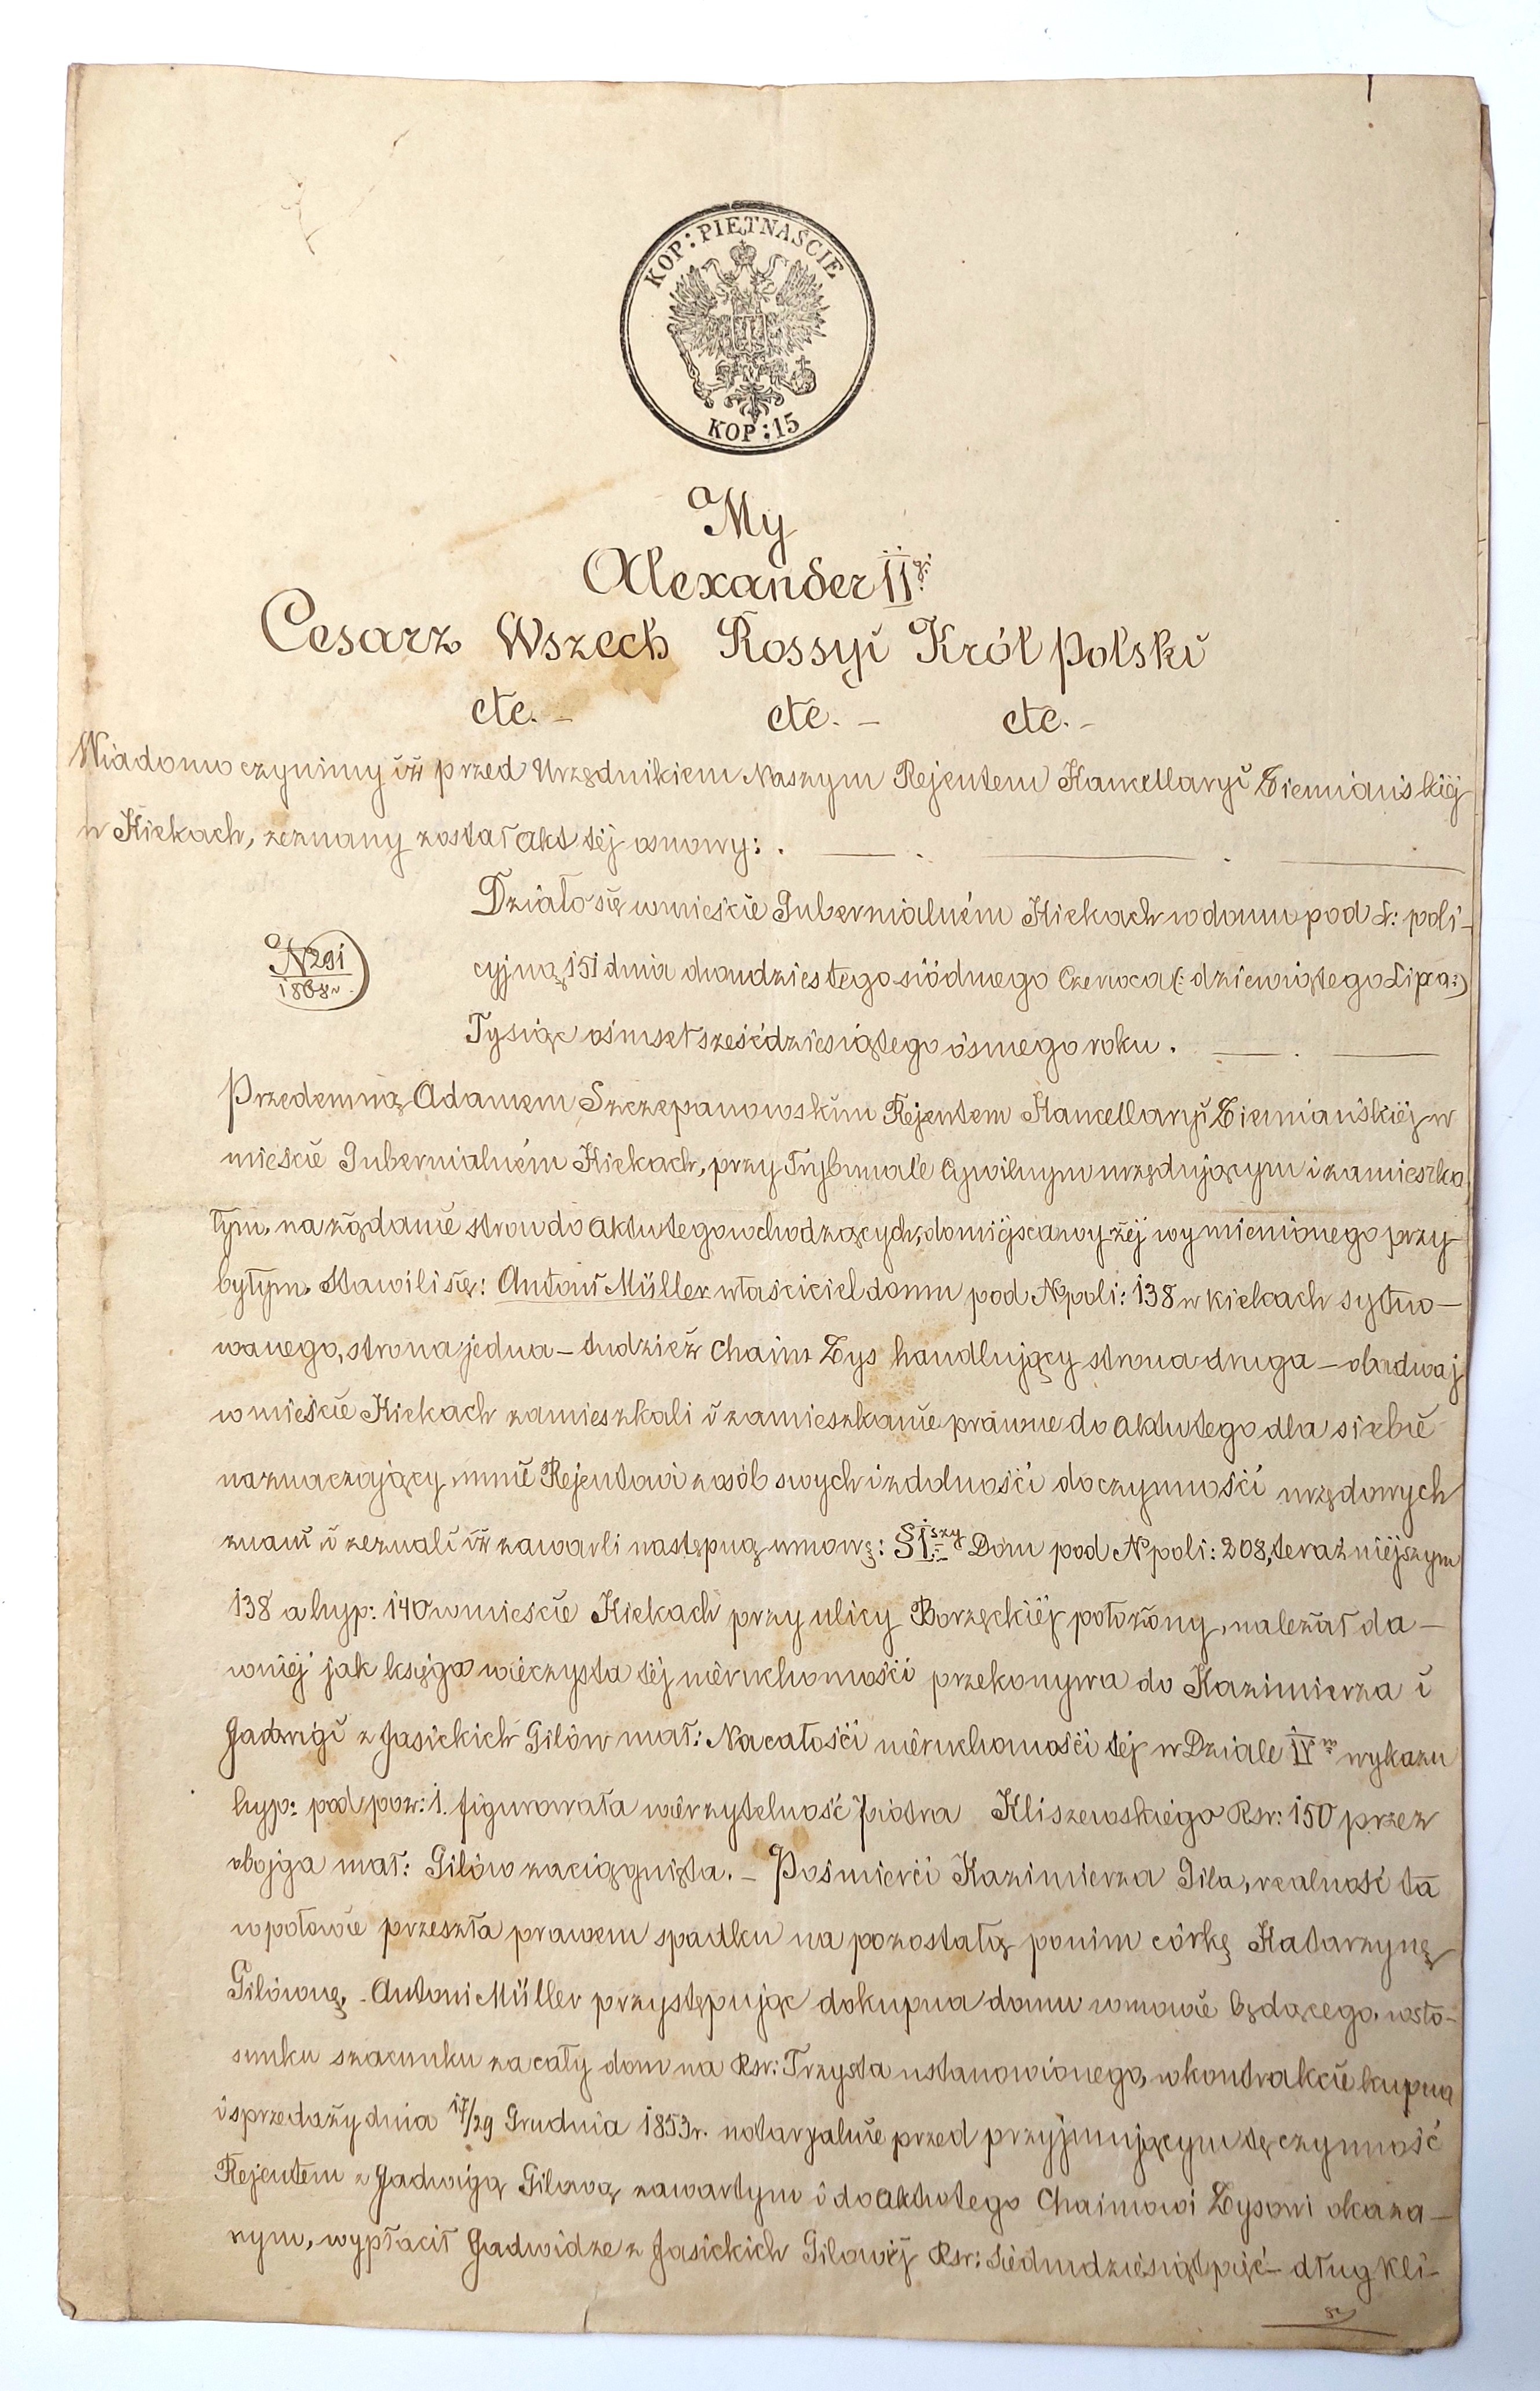 KOP: PIĘTNAŚCIE
KOP: 15
My
Alexander II gi
Cesarz Wszech Rossyi Król Polski
etc. – etc. – etc. –
Wiadomo czynimy iż przed Urzędnikiem Naszym Rejentem Kancellaryi Ziemiańskiéj
w Kielcach, zeznany został akt téj osnowy: .
Działo się w mieście Gubernialném Kielcach w domu pod L: poli-
N 291
1868 r.
cyjną 151 dnia dwudziestego siódmego Czerwca (: dziewiątego Lipca :)
Tysiąc ośmset sześćdziesiątego ósmego roku.
Przedemną Adamem Szczepanowskim Rejentem Kancellaryi Ziemiańskiéj w
mieście Gubernialném Kielcach, przy Trybunale Cywilnym urzędującym i zamieszka
łym, na żądanie stron do aktu tego wchodzących, do miéjsca wyżéj wymienionego przy-
byłym. Stawili się: Antoni Müller właściciel domu pod N poli: 138 w Kielcach sytuo-
wanego, strona jedna – tudzież Chaim Zys handlujący strona druga – obadwaj
w mieście Kielcach zamieszkali i zamieszkanie prawne do aktu tego dla siebie
naznaczający, mnie Rejentowi z osób swych i zdolności do czynności urzędowych
znani i zeznali iż zawarli następną umowę: § I szy Dom pod N poli: 208, teraźniéjszym
138 a hyp: 140 w mieście Kielcach przy ulicy Borzęckiéj położony, należał da-
wniéj jak księga wieczysta téj nieruchomości przekonywa do Kazimierza i
Jadwigi z Jasickich Gilów mał: Na całości nieruchomości téj w Dziale IV m wykazu
hyp: pod poz: 1. figurowała wierzytelność Piotra Kliszewskiego Rsr: 150 przez
obojga mał: Gilów zaciągnięta. – Po śmierci Kazimierza Gila, realność ta
w połowie przeszła prawem spadku na pozostałą po nim córkę Katarzynę
Gilównę. Antoni Müller przystępując do kupna domu w mowie będącego, w sto-
sunku szacunku za cały dom na Rsr: Trzysta ustanowionego, w kontrakcie kupna
i sprzedaży dnia 17/29 Grudnia 1853 r. notaryalnie przed przyjmującym tę czynność
Rejentem z Jadwigą Gilową zawartym i do aktu tego Chaimowi Zysowi okaza-
nym, wypłacił Jadwidze z Jasickich Gilowéj Rsr: Siedmdziesiąt pięć – dług Kli-
sz